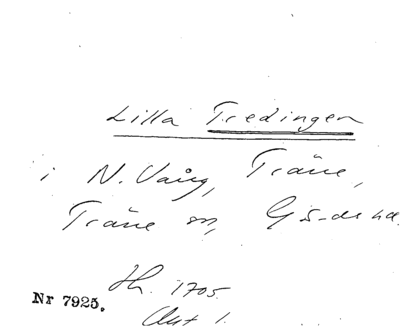 Lilla Tredingen
i N. Vång, Träne,
Träne sn, Gärds hd.
Hh. 1705.
Nr 7925.
Akt 1.